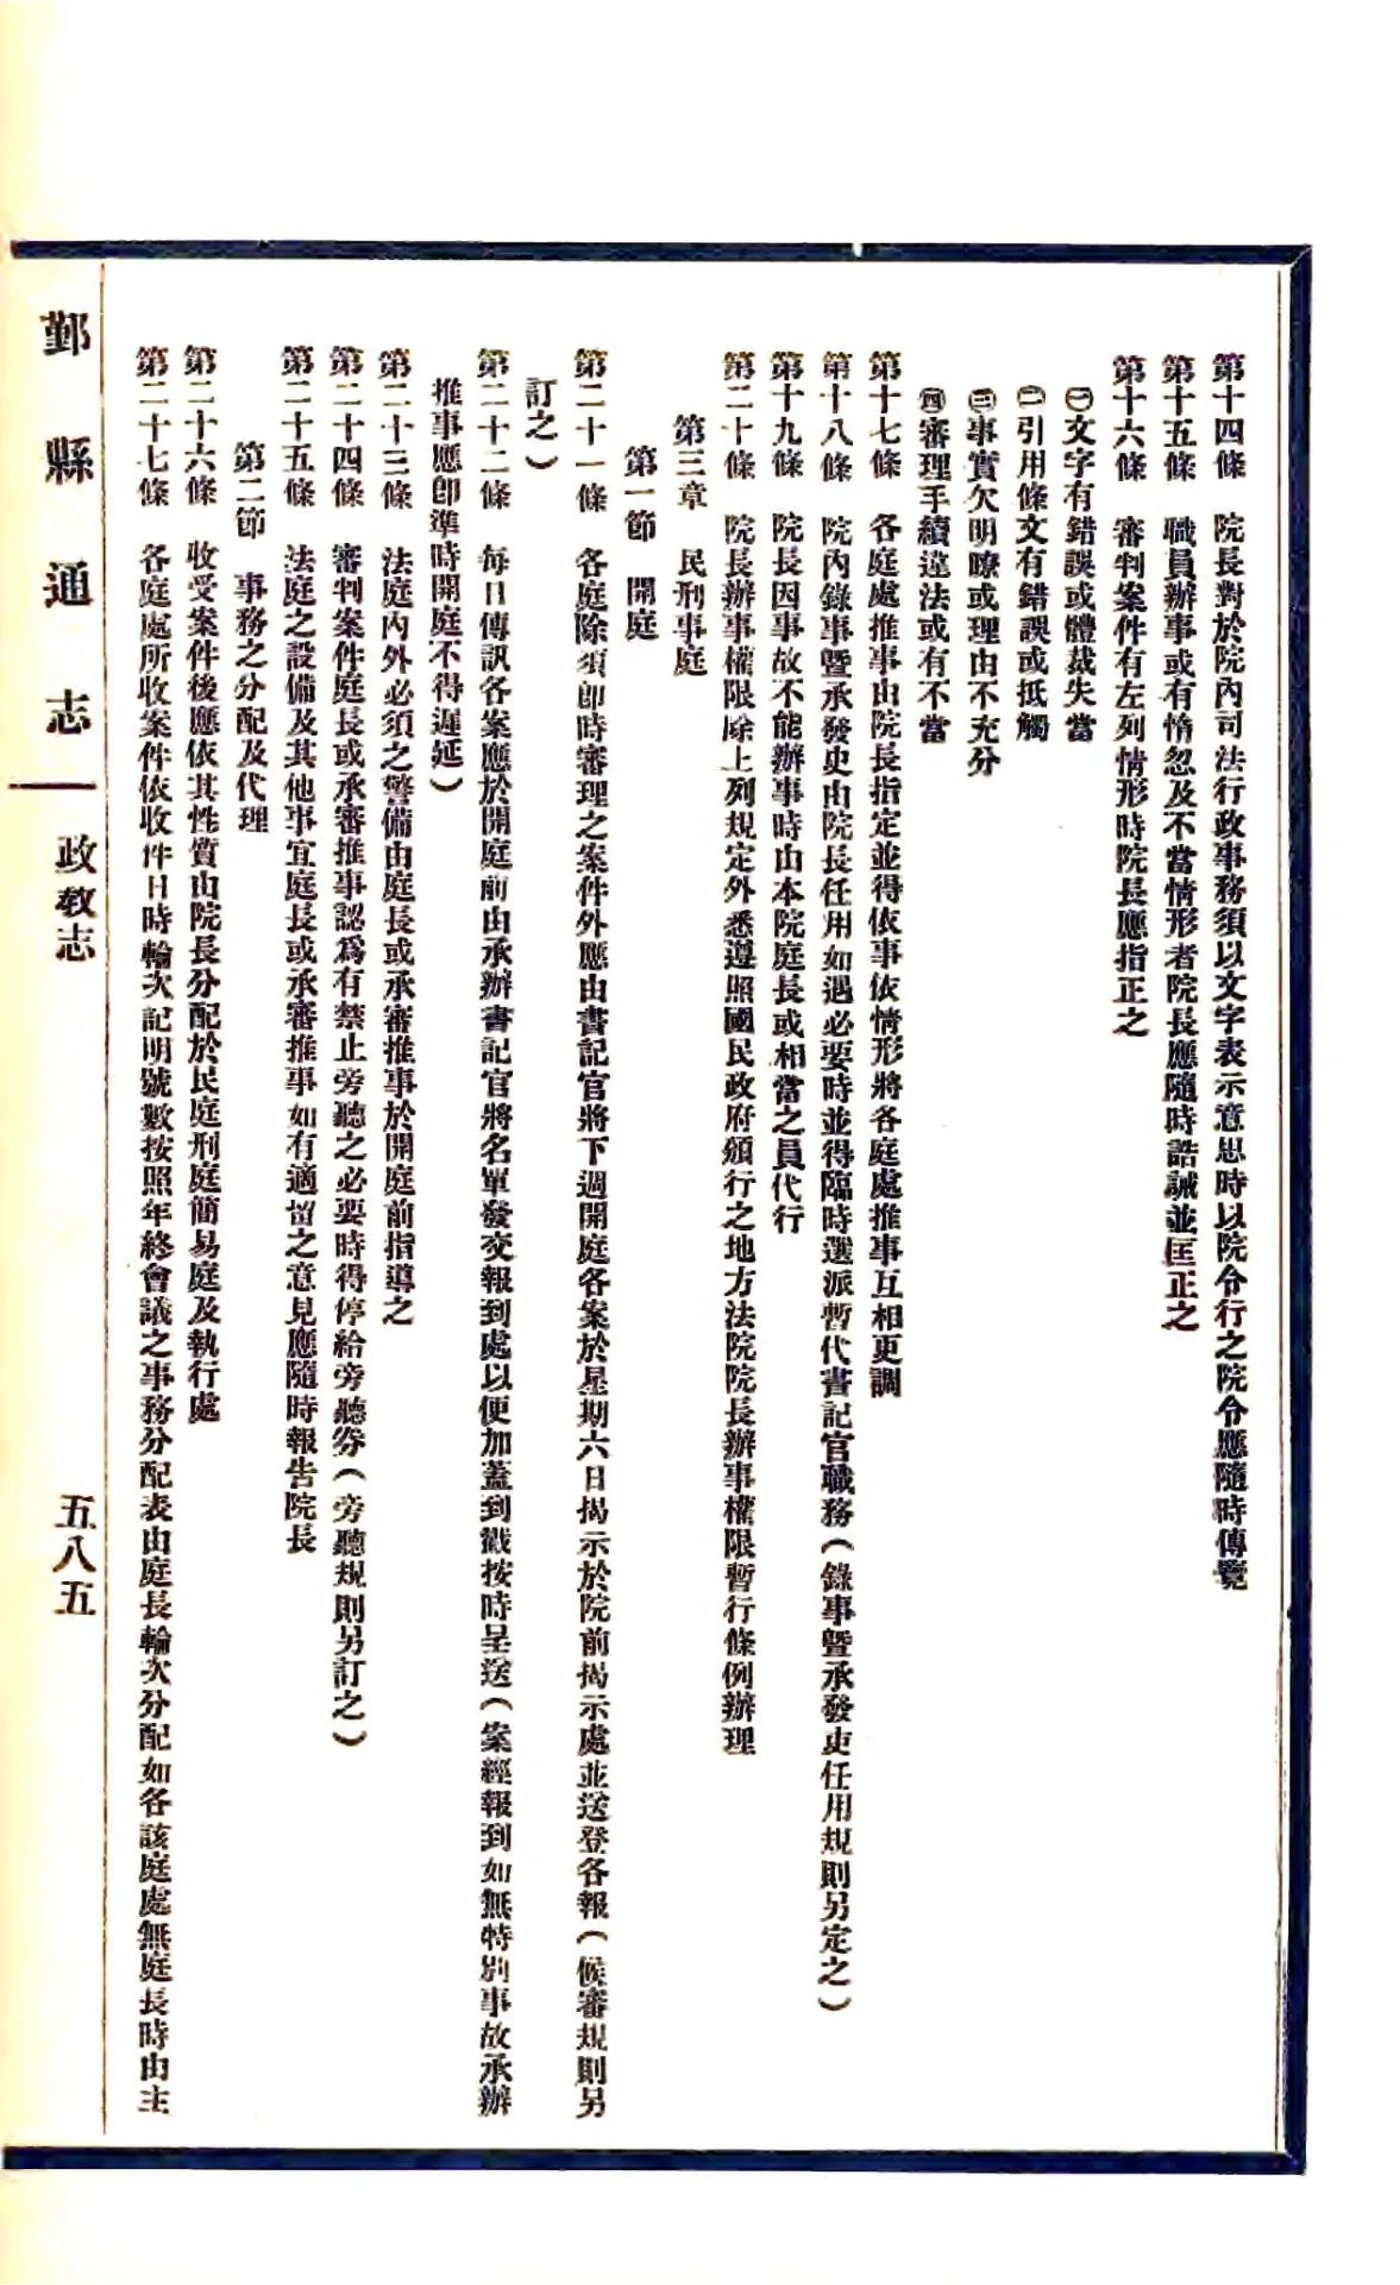 第十四條　院長對於院內司法行政事務須以文字表示意思時以院令行之院令應隨時傳覽
第十五條　職員辦事或有惰忽及不當情形者院長應隨時誥誡並匡正之
第十六條　審判案件有左列情形時院長應指正之
㊀文字有錯誤或體裁失當
㊁引用條文有錯誤或抵觸
㊂事實欠明瞭或理由不充分
㊃審理手續違法或有不當
第十七條　各庭處推事由院長指定並得依事依情形將各庭處推事互相更調
第十八條　院內錄事暨承發吏由院長任用如遇必要時並得臨時選派暫代書記官職務（錄事暨承發吏任用規則另定之）
第十九條　院長因事故不能辦事時由本院庭長或相當之員代行
第二十條　院長辦事權限除上列規定外悉遵照國民政府頒行之地方法院院長辦事權限暫行條例辦理
第三章　民刑事庭
第一節　開庭
第二十一條　各庭除須即時審理之案件外應由書記官將下週開庭各案於星期六日揭示於院前揭示處並送登各報（候審規則另
訂之）
第二十二條　每日傳訊各案應於開庭前由承辦書記官將名單發交報到處以便加蓋到戳按時呈送（案經報到如無特別事故承辦
推事應即準時開庭不得遲延）
第二十三條　法庭內外必須之警備由庭長或承審推事於開庭前指導之
第二十四條　審判案件庭長或承審推事認爲有禁止旁聽之必要時得停給旁聽券（旁聽規則另訂之）
第二十五條　法庭之設備及其他事宜庭長或承審推事如有適當之意見應隨時報告院長
第二節　事務之分配及代理
第二十六條　收受案件後應依其性質由院長分配於民庭刑庭簡易庭及執行處
第二十七條　各庭處所收案件依收件日時輪次記明號數按照年終會議之事務分配表由庭長輪次分配如各該庭處無庭長時由主
鄞縣通志｜政教志　五八五